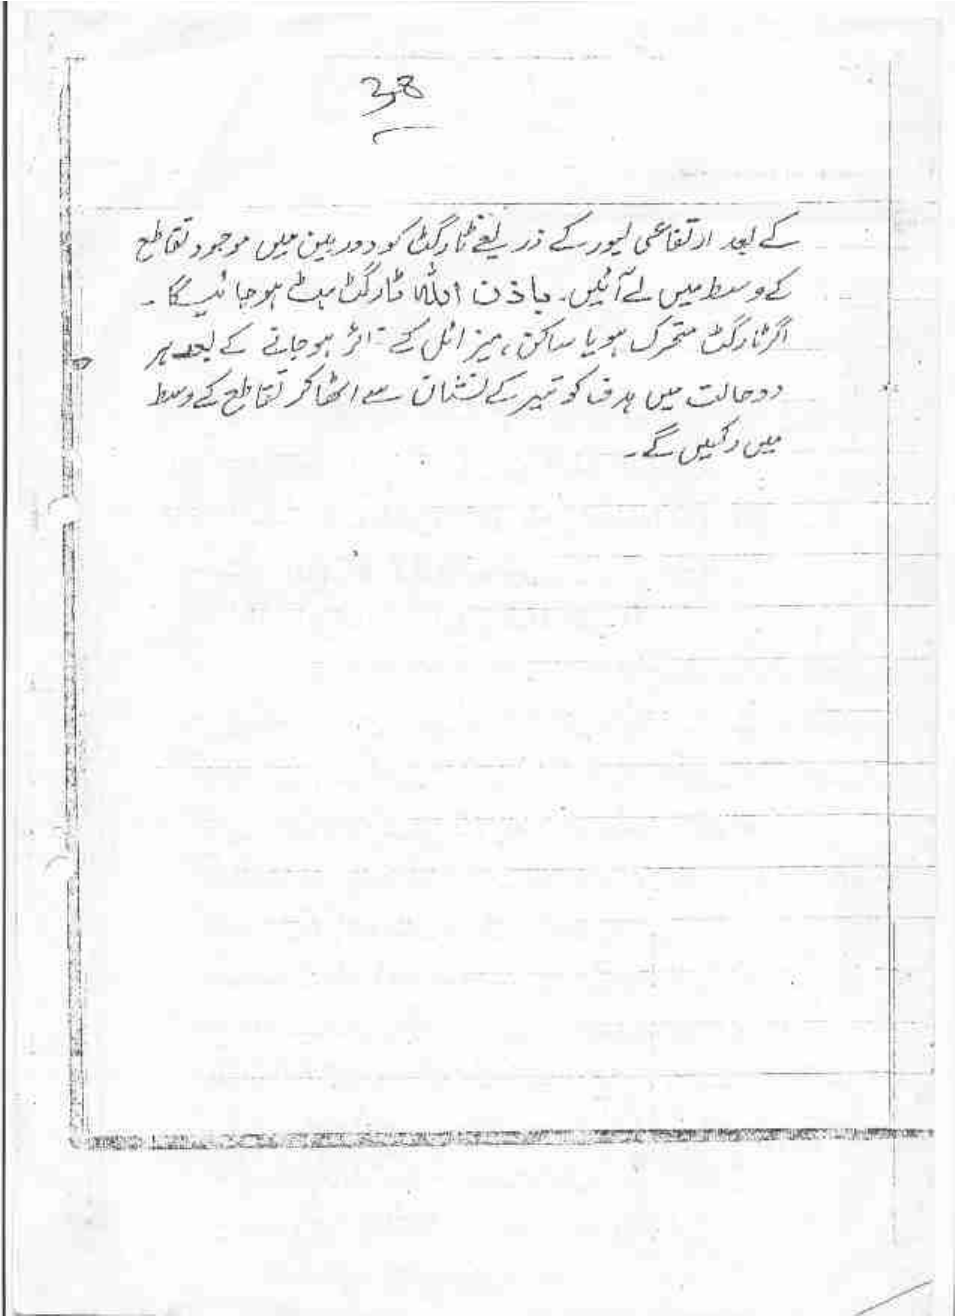 38
کے بعد ارتفاعی لیور کے ذریعے ٹارگٹ کو دوربین میں موجود تقاطع
کے وسط میں لے آئیں۔ باذن اللہ ٹارگٹ ہٹ ہو جائیگا۔
اگر ٹارگٹ متحرک ہو یا ساکن، میزائل کے فائر ہو جانے کے بعد ہر
دو حالت میں ہدف کو تیر کے نشان سے اٹھا کر تقاطع کے وسط
میں رکھیں گے۔